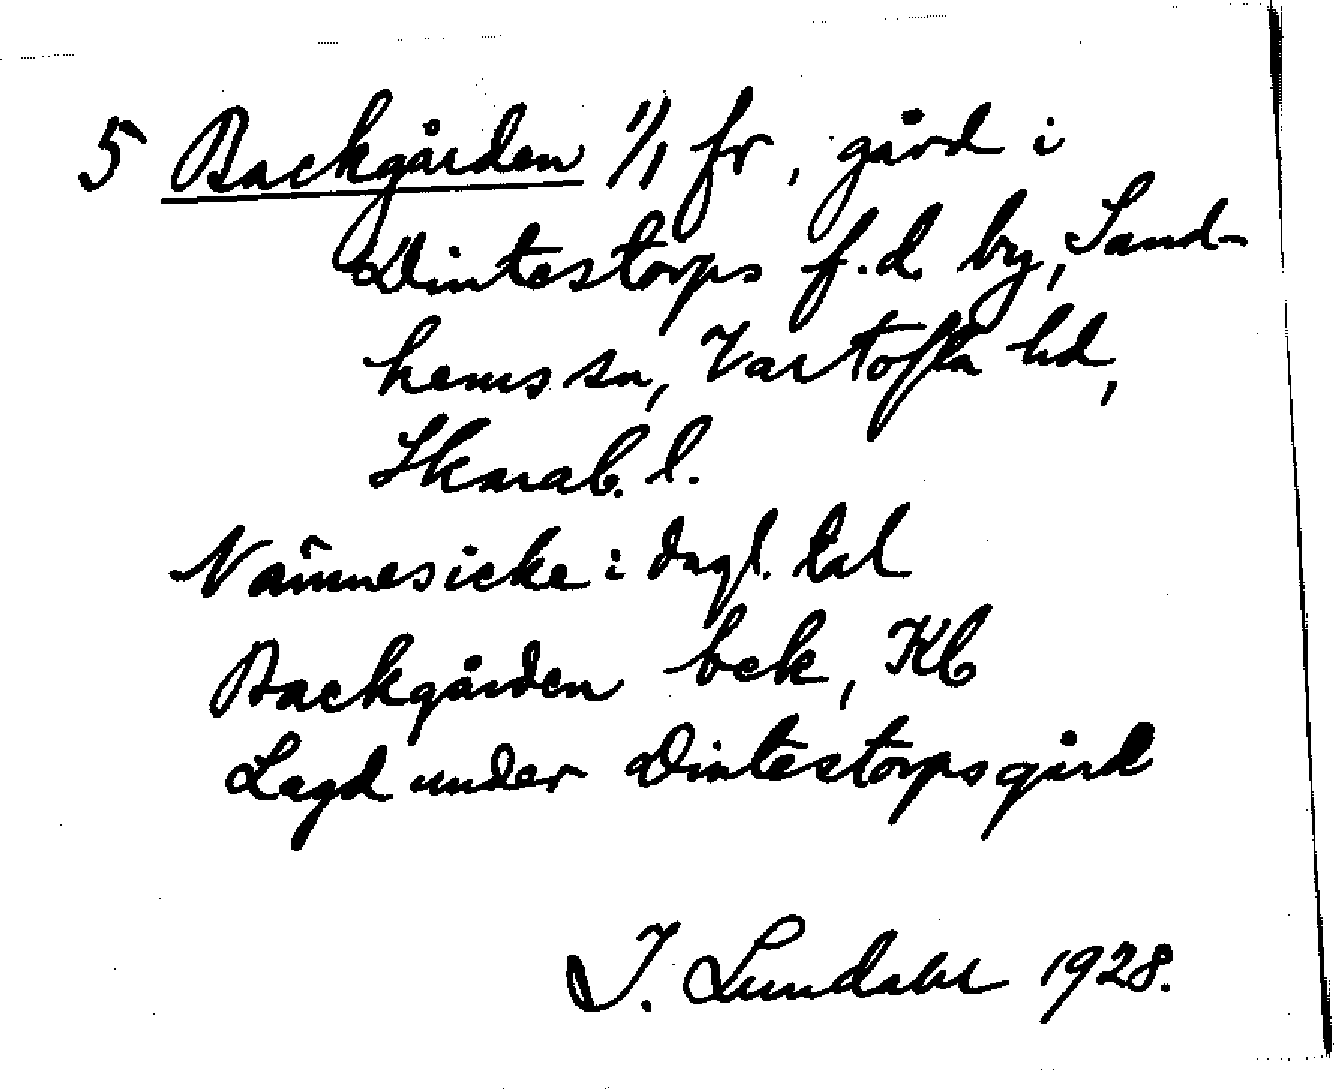 5 Backgården 1/1 fr, gård i
Dintestorps f.d. by, Sand-
hems sn, Vartofta hd,
Skarab. l.
Nämnes icke i dagl. tal
Backgården bek, Kb
Lagd under Dintestorpsgård
I. Lundahl 1928.